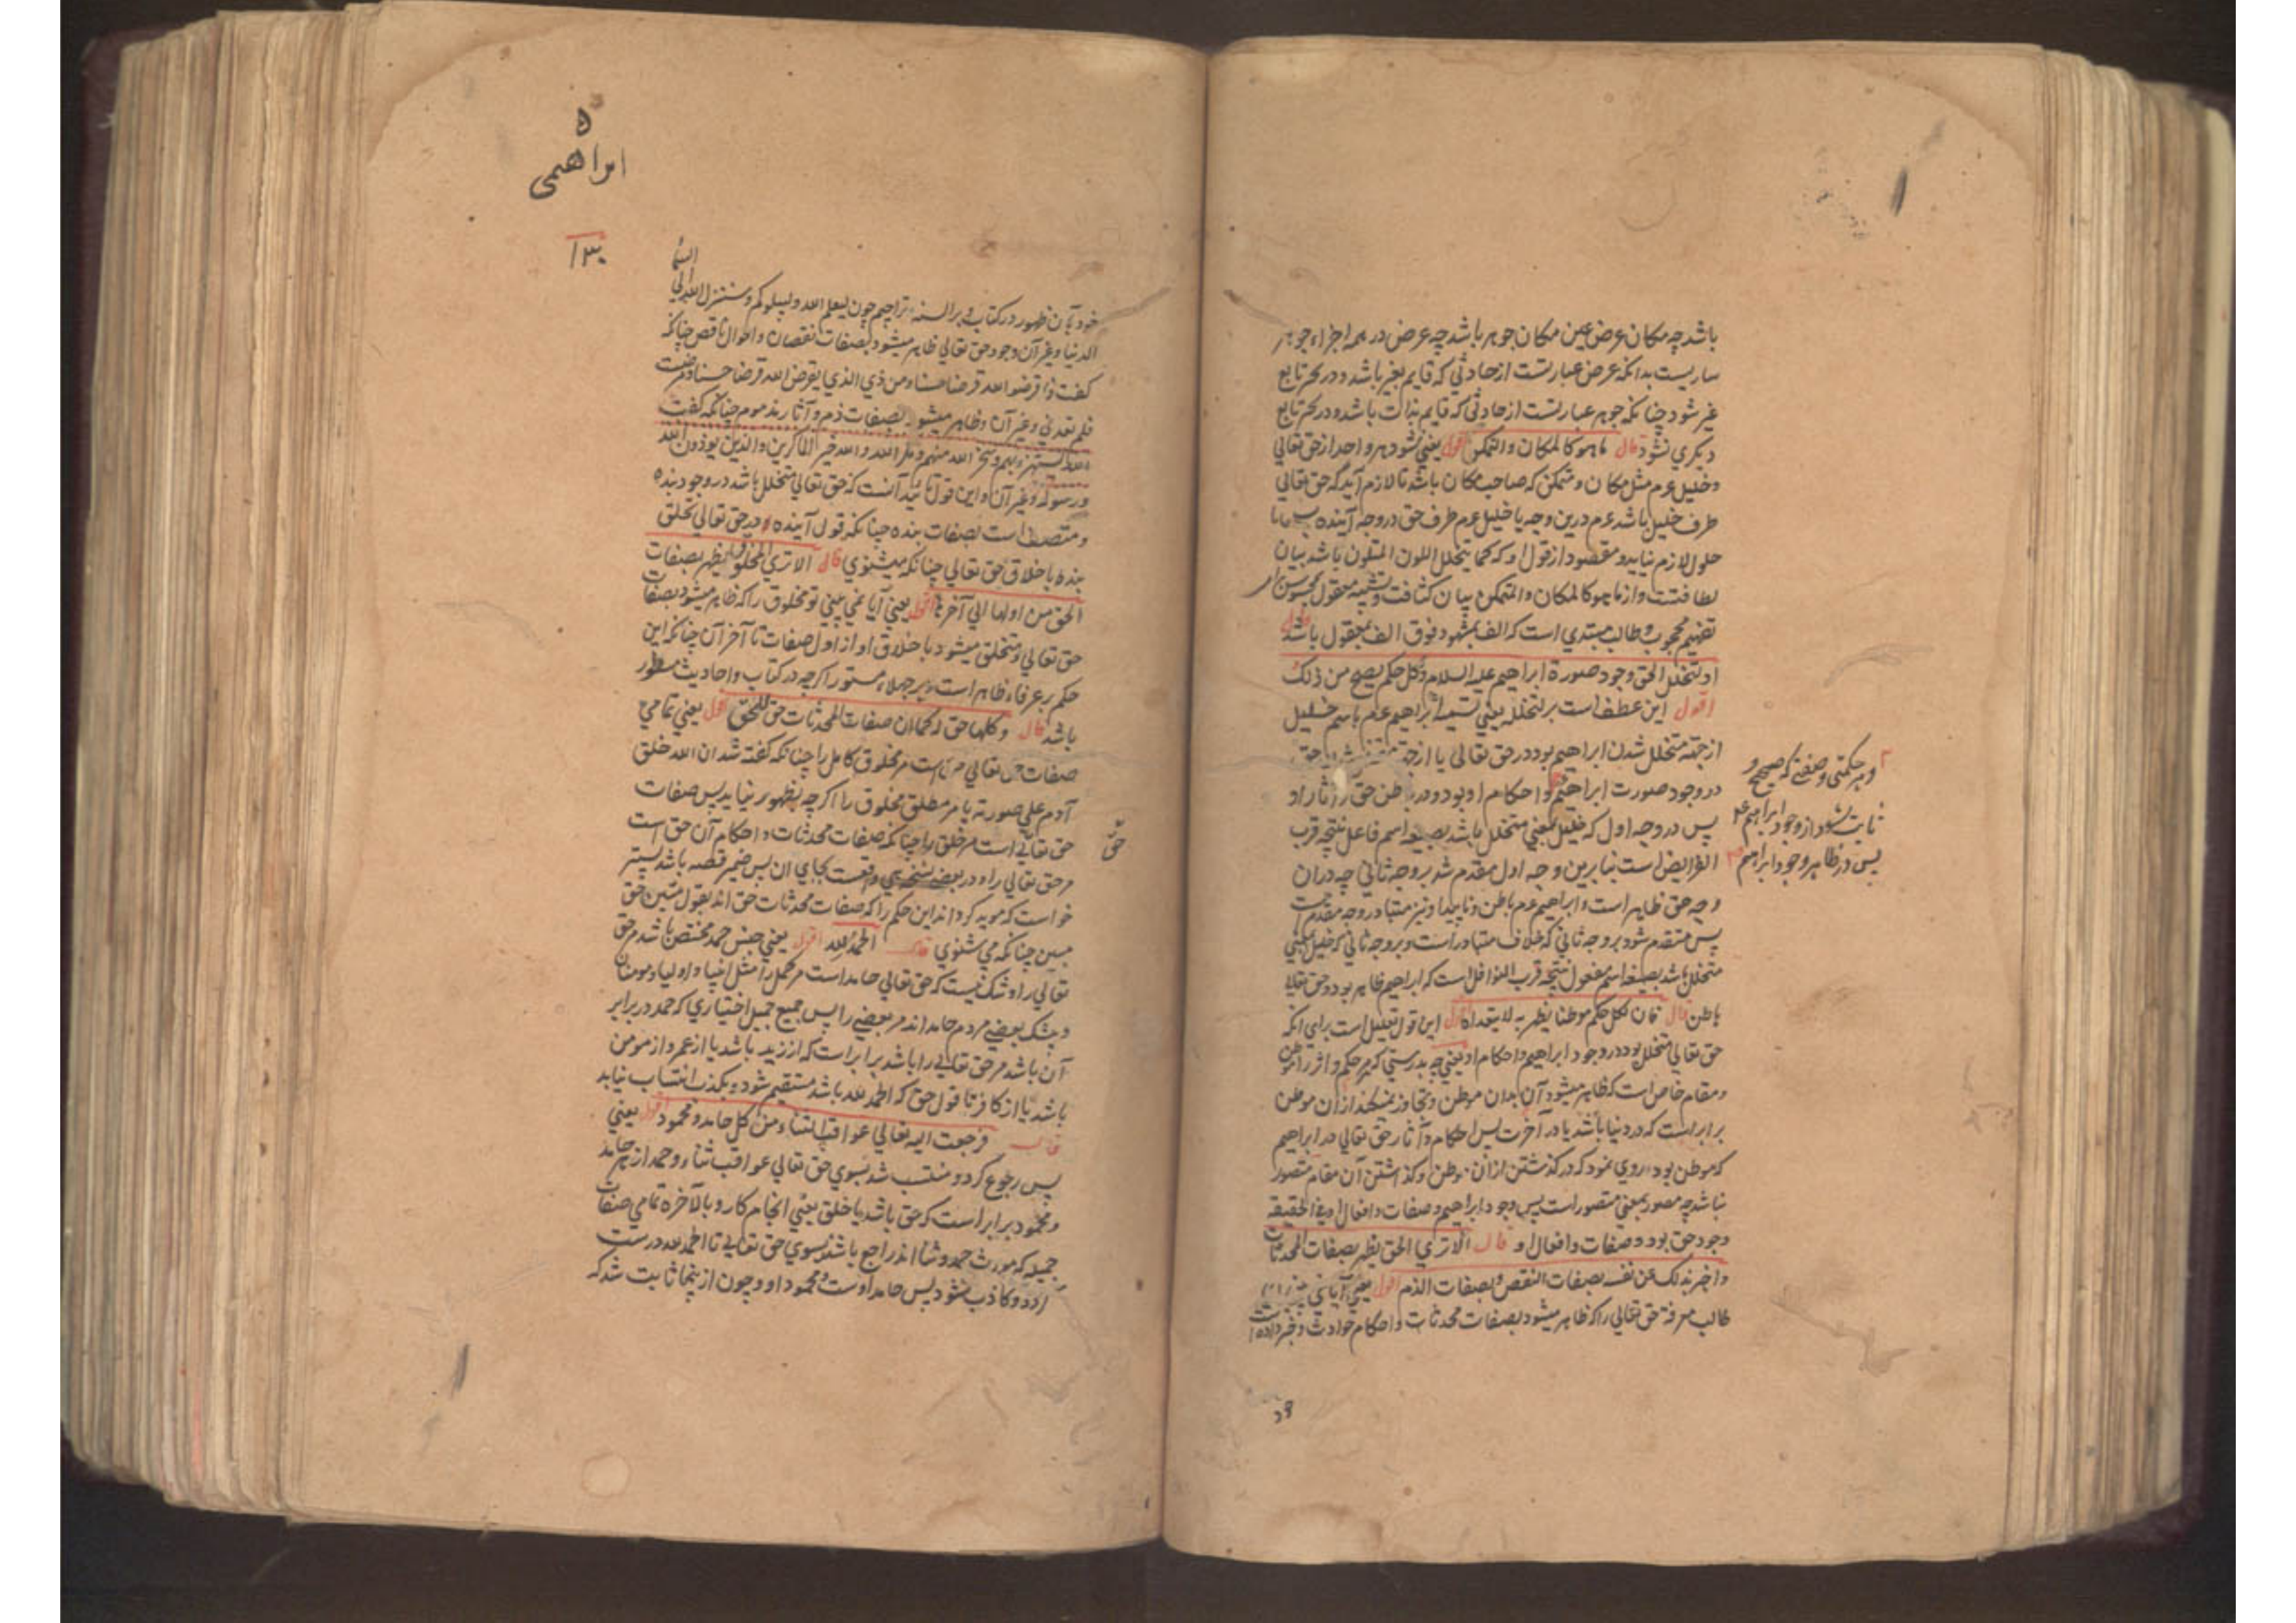 باشد چه مکان عرض عین مکان جوهر باشد چه عرض در همه اجزاء جوهر
ساریست بدانکه عرض عبارتست از حادثی که قایم بغیر باشد و در تحیز تابع
غیر شود چنانکه جوهر عبارتست از حادثی که قایم بذات باشد و در تحیز تابع
دیکری نشود قال ما هو کالمکان والمتمکن اقول یعنی نشود هر واحد از حق تعالی
و خلیل عم مثل مکان و متمکن که صاحب مکان باشد تا لازم آید که حق تعالی
ظرف خلیل باشد عم درین وجه یا خلیل عم ظرف حق در وجه آینده
حلول لازم نیاید و مقصود از قول او که کما یتخلل اللون المتلون باشد بیان
لطافتست و از ما هو کالمکان والمتمکن بیان کثافت و تشبیه معقول بمحسوس
تفهیم محجوب و طالب مبتدی است که الف بمشهود فوق الف بمعقول باشد قال
او لتخلل الحق وجود صورة ابراهیم علیه السلام وکل حکم یصح من ذلک
اقول این عطف است بر لتخلله یعنی تسمیه ابراهیم عم باسم خلیل
از جهة متخلل شدن ابراهیم بود در حق تعالی یا از جهة متخلل شدن حق
در وجود صورت ابراهیم و احکام او بود و در باطن حق و آثار او
پس در وجه اول که خلیل بمعنی متخلل باشد بصیغه اسم فاعل نتیجه قرب
الفرایض است بنابرین وجه اول مقدم شد بر وجه ثانی چه در ان
وجه حق ظاهر است و ابراهیم عم باطن و ناپیدا و نیز متبادر وجه مقدم است
پس متقدم شود بر وجه ثانی که خلاف متبادر است و بر وجه ثانی که خلیل بمعنی
متخلل باشد بصیغه اسم مفعول نتیجه قرب النوافل است که ابراهیم ظاهر بود و حق تعالی
باطن قال فان لکل حکم موطنا یظهر به لا یتعداه اقول این قول تعلیل است برای انکه
حق تعالی متخلل بود در وجود ابراهیم و احکام او یعنی چه بدرستی که هر حکم و اثر را موطن
و مقام خاص است که ظاهر میشود آن بدان موطن و تجاوز نمیکند از ان موطن
برابر است که در دنیا باشد یا در آخرت پس احکام و آثار حق تعالی در ابراهیم
که موطن بود روی نمود که در کذشتن از ان موطن و کذاشتن آن مقام متصور
نباشد چه مصور بمعنی متصور است پس وجود ابراهیم و صفات و افعال او فی الحقیقه
وجود حق بود و صفات و افعال او قال الا تری الحق یظهر بصفات المحدثات
و اخبر بذلک عن نفسه بصفات النقص و بصفات الذم اقول یعنی آیا نمی بینی
طالب معرفة حق تعالی را که ظاهر میشود بصفات محدثات و احکام حوادث و خبر داده است
و هر حکمتی و صفتی که صحیح و
ثابت شود از وجود ابراهیم عم
پس در ظاهر وجود ابراهیم
ابراهیمی
۱۳۰
السما
خود بآن ظهور در کتاب و بر السنه تراجیم چون لیعلم الله و لیبلوکم و ینزل الله الی
الدنیا و غیر آن وجود حق تعالی ظاهر میشود بصفات نقصان و احوال ناقص چنانکه
کفت و اقرضوا الله قرضا حسنا و من ذی الذی یقرض الله قرضا حسنا و مرضت
فلم تعدنی و غیر آن و ظاهر میشود بصفات ذم و آثار مذموم چنانکه کفت
الله یستهزء بهم و سخر الله منهم و مکر الله و الله خیر الماکرین و الذین یوذون الله
و رسوله و غیر آن و این قول تائید آنست که حق تعالی متخلل باشد در وجود بنده
و متصف است بصفات بنده چنانکه قول آینده در حق تعالی تخلق
بنده باخلاق حق تعالی چنانکه میشنوی قال الا تری المخلوق یظهر بصفات
الحق من اولها الی آخرها اقول یعنی آیا نمی بینی تو مخلوق را که ظاهر میشود بصفات
حق تعالی و متخلق میشود باخلاق او از اول صفات تا آخر آن چنانکه این
حکم بر عرفاء ظاهر است و بر جهلاء مستور اکرچه در کتاب و احادیث مسطور
باشد قال و کلها حق له کما ان صفات المحدثات حق للحق اقول یعنی تمامی
صفات حق تعالی حق است مر مخلوق کامل را چنانکه کفته شد ان الله خلق
آدم علی صورته یا مر مطلق مخلوق را اکرچه بظهور نیاید پس صفات
حق تعالی است مر خلق را چنانکه صفات محدثات و احکام آن حق است
حق
مر حق تعالی را و در بعضی نسخه هی واقعست بجای ان پس ضمیر قصه باشد پستر
خواست که موید کرداند این حکم را که صفات محدثات حق اند بقول متین حق
مبین چنانکه می شنوی قال الحمد لله اقول یعنی جنس حمد مختص باشد مر حق
تعالی را و شک نیست که حق تعالی حامد است مر کمل را مثل انبیا و اولیا و مومنان
و بیشک بعضی مردم حامد اند مر بعضی را پس جمیع جمیل اختیاری که حمد در برابر
آن باشد مر حق تعالی را باشد برابر است که از زید باشد یا از عمر و از مومن
باشد یا از کافر تا قول حق که الحمد لله باشد مستقیم شود و بکذب انتساب نیابد
قال فرجعت الیه تعالی عواقب الثناء من کل حامد و محمود اقول یعنی
پس رجوع کرد و منتسب شد بسوی حق تعالی عواقب ثناء و حمد از هر حامد
و محمود برابر است که حق باشد یا خلق یعنی انجام کار و بالآخره تمامی صفات
جمیله که مورث حمد و ثنا اند راجع باشند بسوی حق تعالی تا الحمد لله درست
آردد و کاذب نشود پس حامد اوست و محمود او و چون از ینجا ثابت شد که